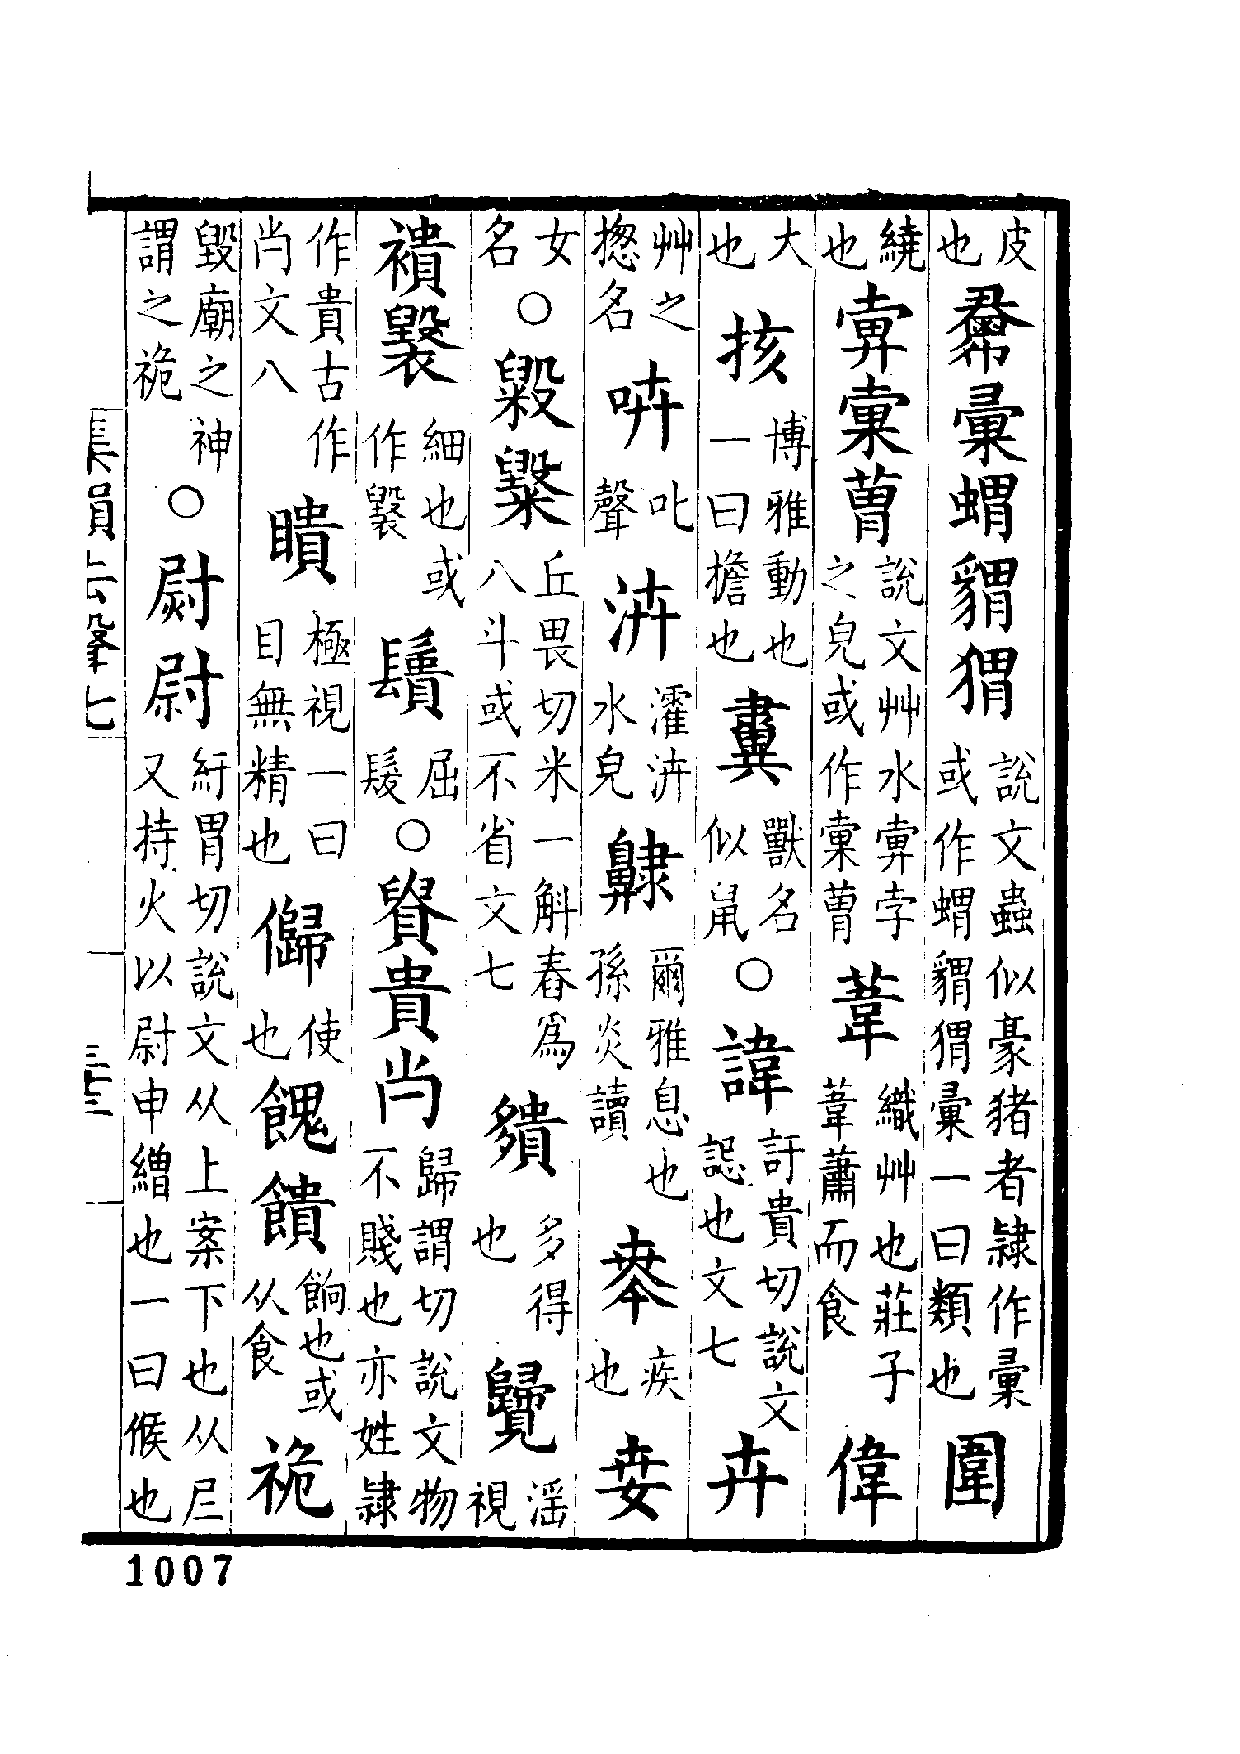 皮也𢑥彙蝟䝽猬說文蟲似豪豬者隸作彙或作蝟䝽猬彙一曰類也圍
繞也㢈𢐧𦳊說文艸水㢈孛之皃或作𢐧𦳊葦織艸也莊子葦蕭而食偉
大也㧡博雅動也一曰擔也䔇獸名似鼠○諱訏貴切說文誋也文七卉
艸之揔名㖠叱聲泋濯泋水皃齂爾雅息也孫炎讀𡘜疾也㚥
女名○毇𣫞丘畏切米一斛舂爲八斗或不省文七䝿多得也䙡滛視
䙡𣫫細也或作𣫫䰎屈髲○𧷛貴𡴋歸謂切說文物不賤也亦姓隸
作貴古作𡴋文八瞶極視一曰目無精也㒑使也餽饋餉也或从食祪
毀廟之神謂之祪○㷉尉紆胃切說文从上案下也从𡰥又持火以尉申繒也一曰候也
集韻去聲七
1007